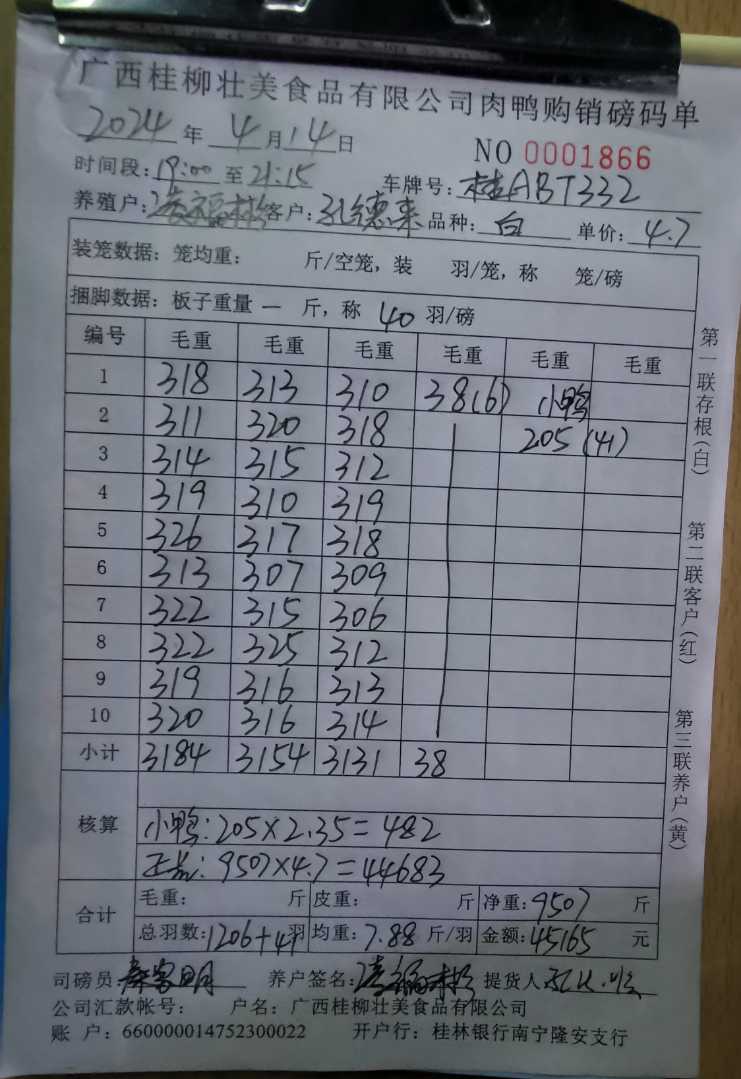 广西桂柳壮美食品有限公司肉鸭购销磅码单
2024年 4月14日 NO 0001866
时间段:19:00至21:15 车牌号:桂ABT332
养殖户: 客户:孔德来 品种:白 单价:4.7
装笼数据:笼均重: 斤/空笼,装 羽/笼,称 笼/磅
捆脚数据:板子重量 一 斤,称 40 羽/磅
编号 毛重 毛重 毛重 毛重 毛重 毛重
1 318 313 310 38(6) 小鸭
2 311 320 318 205(41)
3 314 315 312
4 319 310 319
5 326 317 318
6 313 307 309
7 322 315 306
8 322 325 312
9 319 316 313
10 320 316 314
小计 3184 3154 3131 38
核算
小鸭:205×2.35=482
正品:9507×4.7=44683
合计 毛重: 斤 皮重: 斤 净重:9507 斤
总羽数:1206+41羽 均重:7.88 斤/羽 金额:45165 元
司磅员 养户签名: 提货人
公司汇款帐号: 户名:广西桂柳壮美食品有限公司
账 户:660000014752300022 开户行:桂林银行南宁隆安支行
第一联存根(白)
第二联客户(红)
第三联养户(黄)